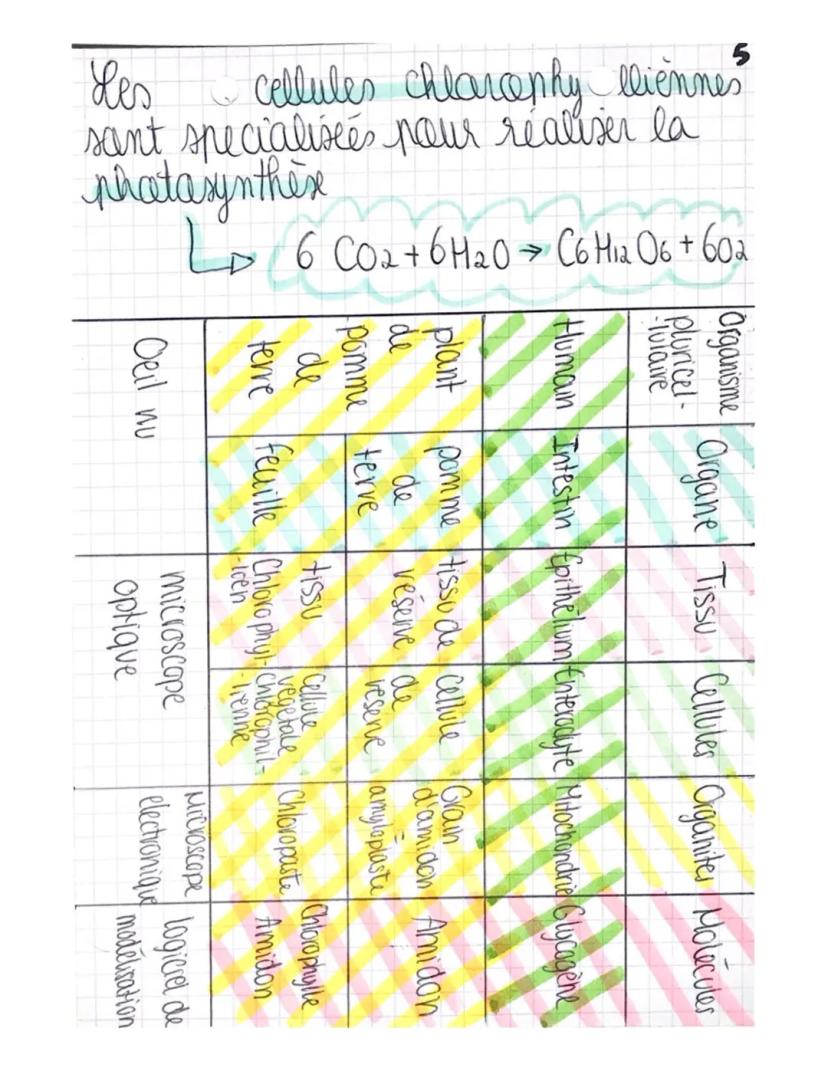 5
Les cellules chlorophy lliènnes
sont specialiseés pour réaliser la
photosynthèse
6 CO2 + 6H2O → C6H12O6 + 6O2
Organisme
pluricel-
-lulaire
Organe
Tissu
Cellules
Organites
Molécules
Humain
Intestin
Epithélium
Enterocyte
Mitochondrie
Glycogène
plant
de
pomme
de
terre
pomme
de
terre
tissu de
réserve
cellule
de
réserve
Grain
d'amidon
=
amyloplaste
Amidon
feuille
tissu
Chlorophyl-
Cellule
végétale
chlorophil-
-lienne
Chloropaste
Chlorophylle
Amidon
Oeil nu
microscope
optique
Microscope
électronique
logiciel de
modélisation